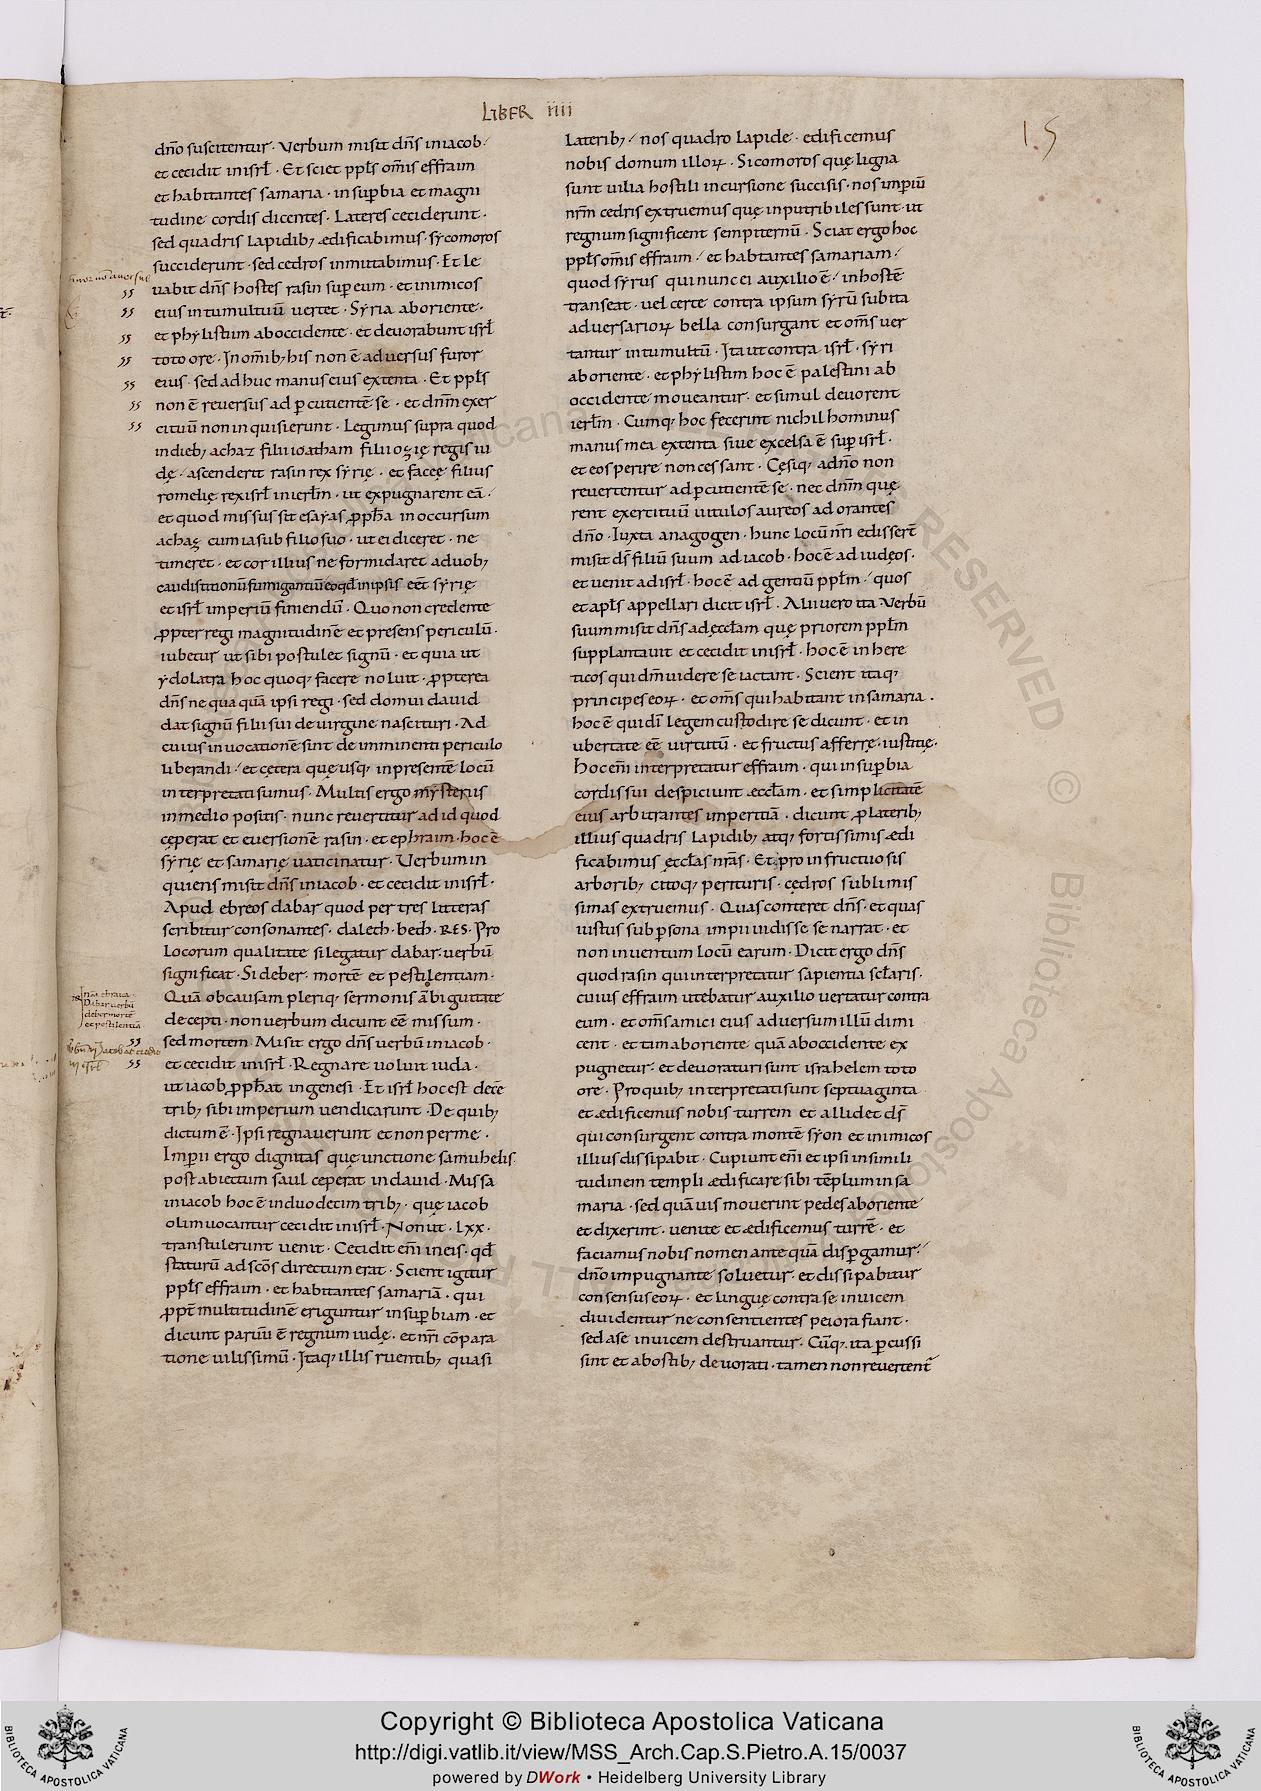 LIBER IIII
15
dño suscitentur · Verbum misit dñs in iacob ·
et cecidit in isrł · Et sciet ppłs om̄is effraim
et habitantes samaria · in sup̱bia et magni
tudine cordis dicentes · Lateres ceciderunt ·
sed quadris lapidib; ædificabimus · sycomoros
succiderunt · sed cedros inmittabimus · Et le
vabit dñs hostes rasin sup̱ eum · et inimicos
eius in tumultuū vertet · Syria ab oriente ·
et phylistum ab occidente · et devorabunt isrł
toto ore · In om̄ib; his non ē adversus furor
eius · sed ad huc manus eius extenta · Et ppłs
non ē reversus ad p̱cutientē se · et dnm̄ exer
cituū non inquisierunt · Legimus supra quod
in dieb; achaz filii ioatham filii ozię regis iu
dę · ascenderit rasin rex syrię · et faceę filius
romelię rex isrł in ierłm · ut expugnarent eā ·
et quod missus sit esayas p̱pħa in occursum
achaz cum iasub filio suo · ut ei diceret · ne
timeret · et cor illius ne formidaret a duob;
caudis titionū fumigantiū eo qđ in ipsis eēt syrię
et isrł imperiū finiendū · Quo non credente
p̱pter regi magnitudinē et presens periculū ·
iubetur ut sibi postulet signū · et quia ut
ydolatra hoc quoq; facere noluit · p̱pterea
dñs ne qua quā ipsi regi · sed domui david
dat signū filii sui de virgine nascituri · Ad
cuius invocationē sint de imminenti periculo
liberandi · et cętera quę usq; in presentē locū
interpretati sumus · Multis ergo mysteriis
in medio positis · nunc revertitur ad id quod
cęperat et eversionē rasin · et ephraim · hoc ē
syrię et samarię vaticinatur · Verbum in
quiens misit dñs in iacob · et cecidit in isrł ·
Apud ebreos dabar quod per tres litteras
scribitur consonantes · daleth · beth · RES · Pro
locorum qualitate si legatur dabar · verbū
significat · Si deber · mortē et pestilentiam ·
Quā ob causam pleriq; sermonis ābiguitate
decepti · non verbum dicunt eē missum ·
sed mortem · Misit ergo dñs verbū in iacob ·
et cecidit in isrł · Regnare voluit iuda ·
ut iacob p̱pħat in genesi · Et isrł hoc est decē
trib; sibi imperium vendicarunt · De quib;
dictum ē · Ipsi regnaverunt et non per me ·
Imp̱ii ergo dignitas quę unctione samuhelis
post abiectum saul ceperat in david · Missa
in iacob hoc ē in duodecim trib; · quę iacob
olim vocantur cecidit in isrł · Non ut · lxx ·
transtulerunt venit · Cecidit em̄ in eis · qđ
staturū ad scōs directum erat · Scient igitur
ppłs effraim · et habitantes samariā · qui
p̱pt̄ multitudinē eriguntur in sup̱biam · et
dicunt parvū ē regnum iudę · et nr̄i cōpara
tione vilissimū · Itaq; illis ruentib; quasi
laterib; · nos quadro lapide · edificemus
nobis domum illoꝝ · Sicomoros quę ligna
sunt vilia hostili incursione succisis · nos imp̱iū
nrm̄ cedris extruemus quę inputribiles sunt · ut
regnum significent sempiternū · Sciat ergo hoc
ppłs om̄is effraim · et habitantes samariam ·
quod syrus qui nunc ei auxilio ē · in hostē
transeat · vel certe contra ipsum syrū subita
adversarioꝝ bella consurgant et om̄s ver
tantur in tumultū · Ita ut contra isrł · syri
ab oriente · et phylistim hoc ē palestini ab
occidente moveantur · et simul devorent
ierłm · Cumq; hoc fecerint nichilhominus
manus mea extenta sive excelsa ē sup̱ isrł ·
et eos perire non cessant · Cęsiq; a dño non
revertentur ad p̱cutientē se · nec dnm̄ quę
rent exercituū vitulos aureos adorantes
dño · Iuxta anagogen · hunc locū nr̄i edisserē
misit ds̄ filiū suum ad iacob · hoc ē ad iudęos ·
et venit ad isrł · hoc ē ad gentiū ppłm · quos
et apłs appellari dicit isrł · Alii vero ita · Verbū
suum misit dñs ad ęccłam quę priorem ppłm
supplantavit et cecidit in isrł · hoc ē in here
ticos qui dm̄ videre se iactant · Scient itaq;
principes eoꝝ · et om̄s qui habitant in samaria ·
hoc ē qui dī legem custodire se dicunt · et in
ubertate eē virtutū · et fructus afferre iustitię ·
Hoc em̄ interpretatur effraim · qui in sup̱bia
cordis sui despiciunt æccłam · et simplicitatē
eius arbitrantes imperitiā · dicunt p̱ laterib;
illius quadris lapidib; atq; fortissimis ædi
ficabimus ęccłas nrās · Et pro infructuosis
arborib; citoq; perituris · cędros sublimis
simas extruemus · Quas conteret dñs · et quas
iustus sub p̱sona impii vidisse se narrat · et
non inventum locū earum · Dicit ergo dñs
quod rasin qui interpretatur sapientia scłaris ·
cuius effraim utebatur auxilio vertatur contra
eum · et om̄s amici eius adversum illū dimi
cent · et tim ab oriente quā ab occidente ex
pugnetur · et devoraturi sunt israhelem toto
ore · Pro quib; interpretati sunt septuaginta
et ædificemus nobis turrem et allidet ds̄
qui consurgent contra montē syon et inimicos
illius dissipabit · Cupiunt em̄ et ipsi in simili
tudinem templi ædificare sibi tēplum in sa
maria · sed quāvis moverint pedes ab oriente
et dixerint · venite et ædificemus turrē · et
faciamus nobis nomen ante quā disp̱gamur ·
dño impugnante solvetur · et dissipabitur
consensus eoꝝ · et linguę contra se invicem
dividentur ne consentientes peiora fiant ·
sed a se invicem destruantur · Cūq; ita p̱cussi
sint et ab ostib; devorati · tamen non revertent̄
Dabar verbū
deber mortē
et pestilentiā
Copyright © Biblioteca Apostolica Vaticana
http://digi.vatlib.it/view/MSS_Arch.Cap.S.Pietro.A.15/0037
powered by DWork • Heidelberg University Library
BIBLIOTECA APOSTOLICA VATICANA
BIBLIOTECA APOSTOLICA VATICANA